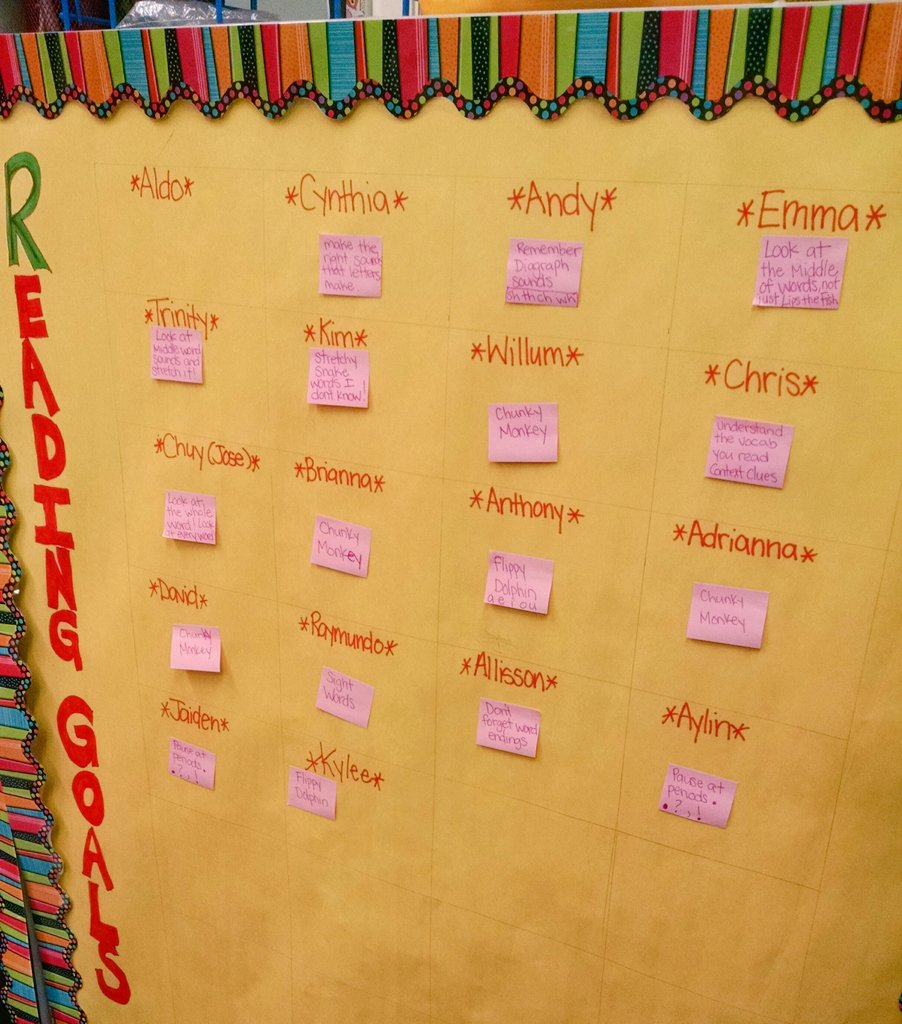 READING GOALS
*Aldo*
*Cynthia*
make the
right sound
that letters
make
*Andy*
Remember
Diagraph
sounds
sh th ch wh
*Emma*
Look at
the Middle
of words, not
just Lips the fish
*Trinity*
Look at
Middle word
sounds and
stretch it!
*Kim*
Stretchy
Snake
words I
dont know!
*Willum*
Chunky
Monkey
*Chris*
Understand
the vocab
you read
Context Clues
*Chuy (Jose)*
Look at
the whole
word! Look
at every word
*Brianna*
Chunky
Monkey
*Anthony*
Flippy
Dolphin
a e i o u
*Adrianna*
Chunky
Monkey
*David*
Chunky
Monkey
*Raymundo*
Sight
Words
*Allisson*
Don't
forget word
endings
*Aylin*
Pause at
periods .
. ? , !
*Jaiden*
Pause at
periods .
. ? , !
*Kylee*
Flippy
Dolphin